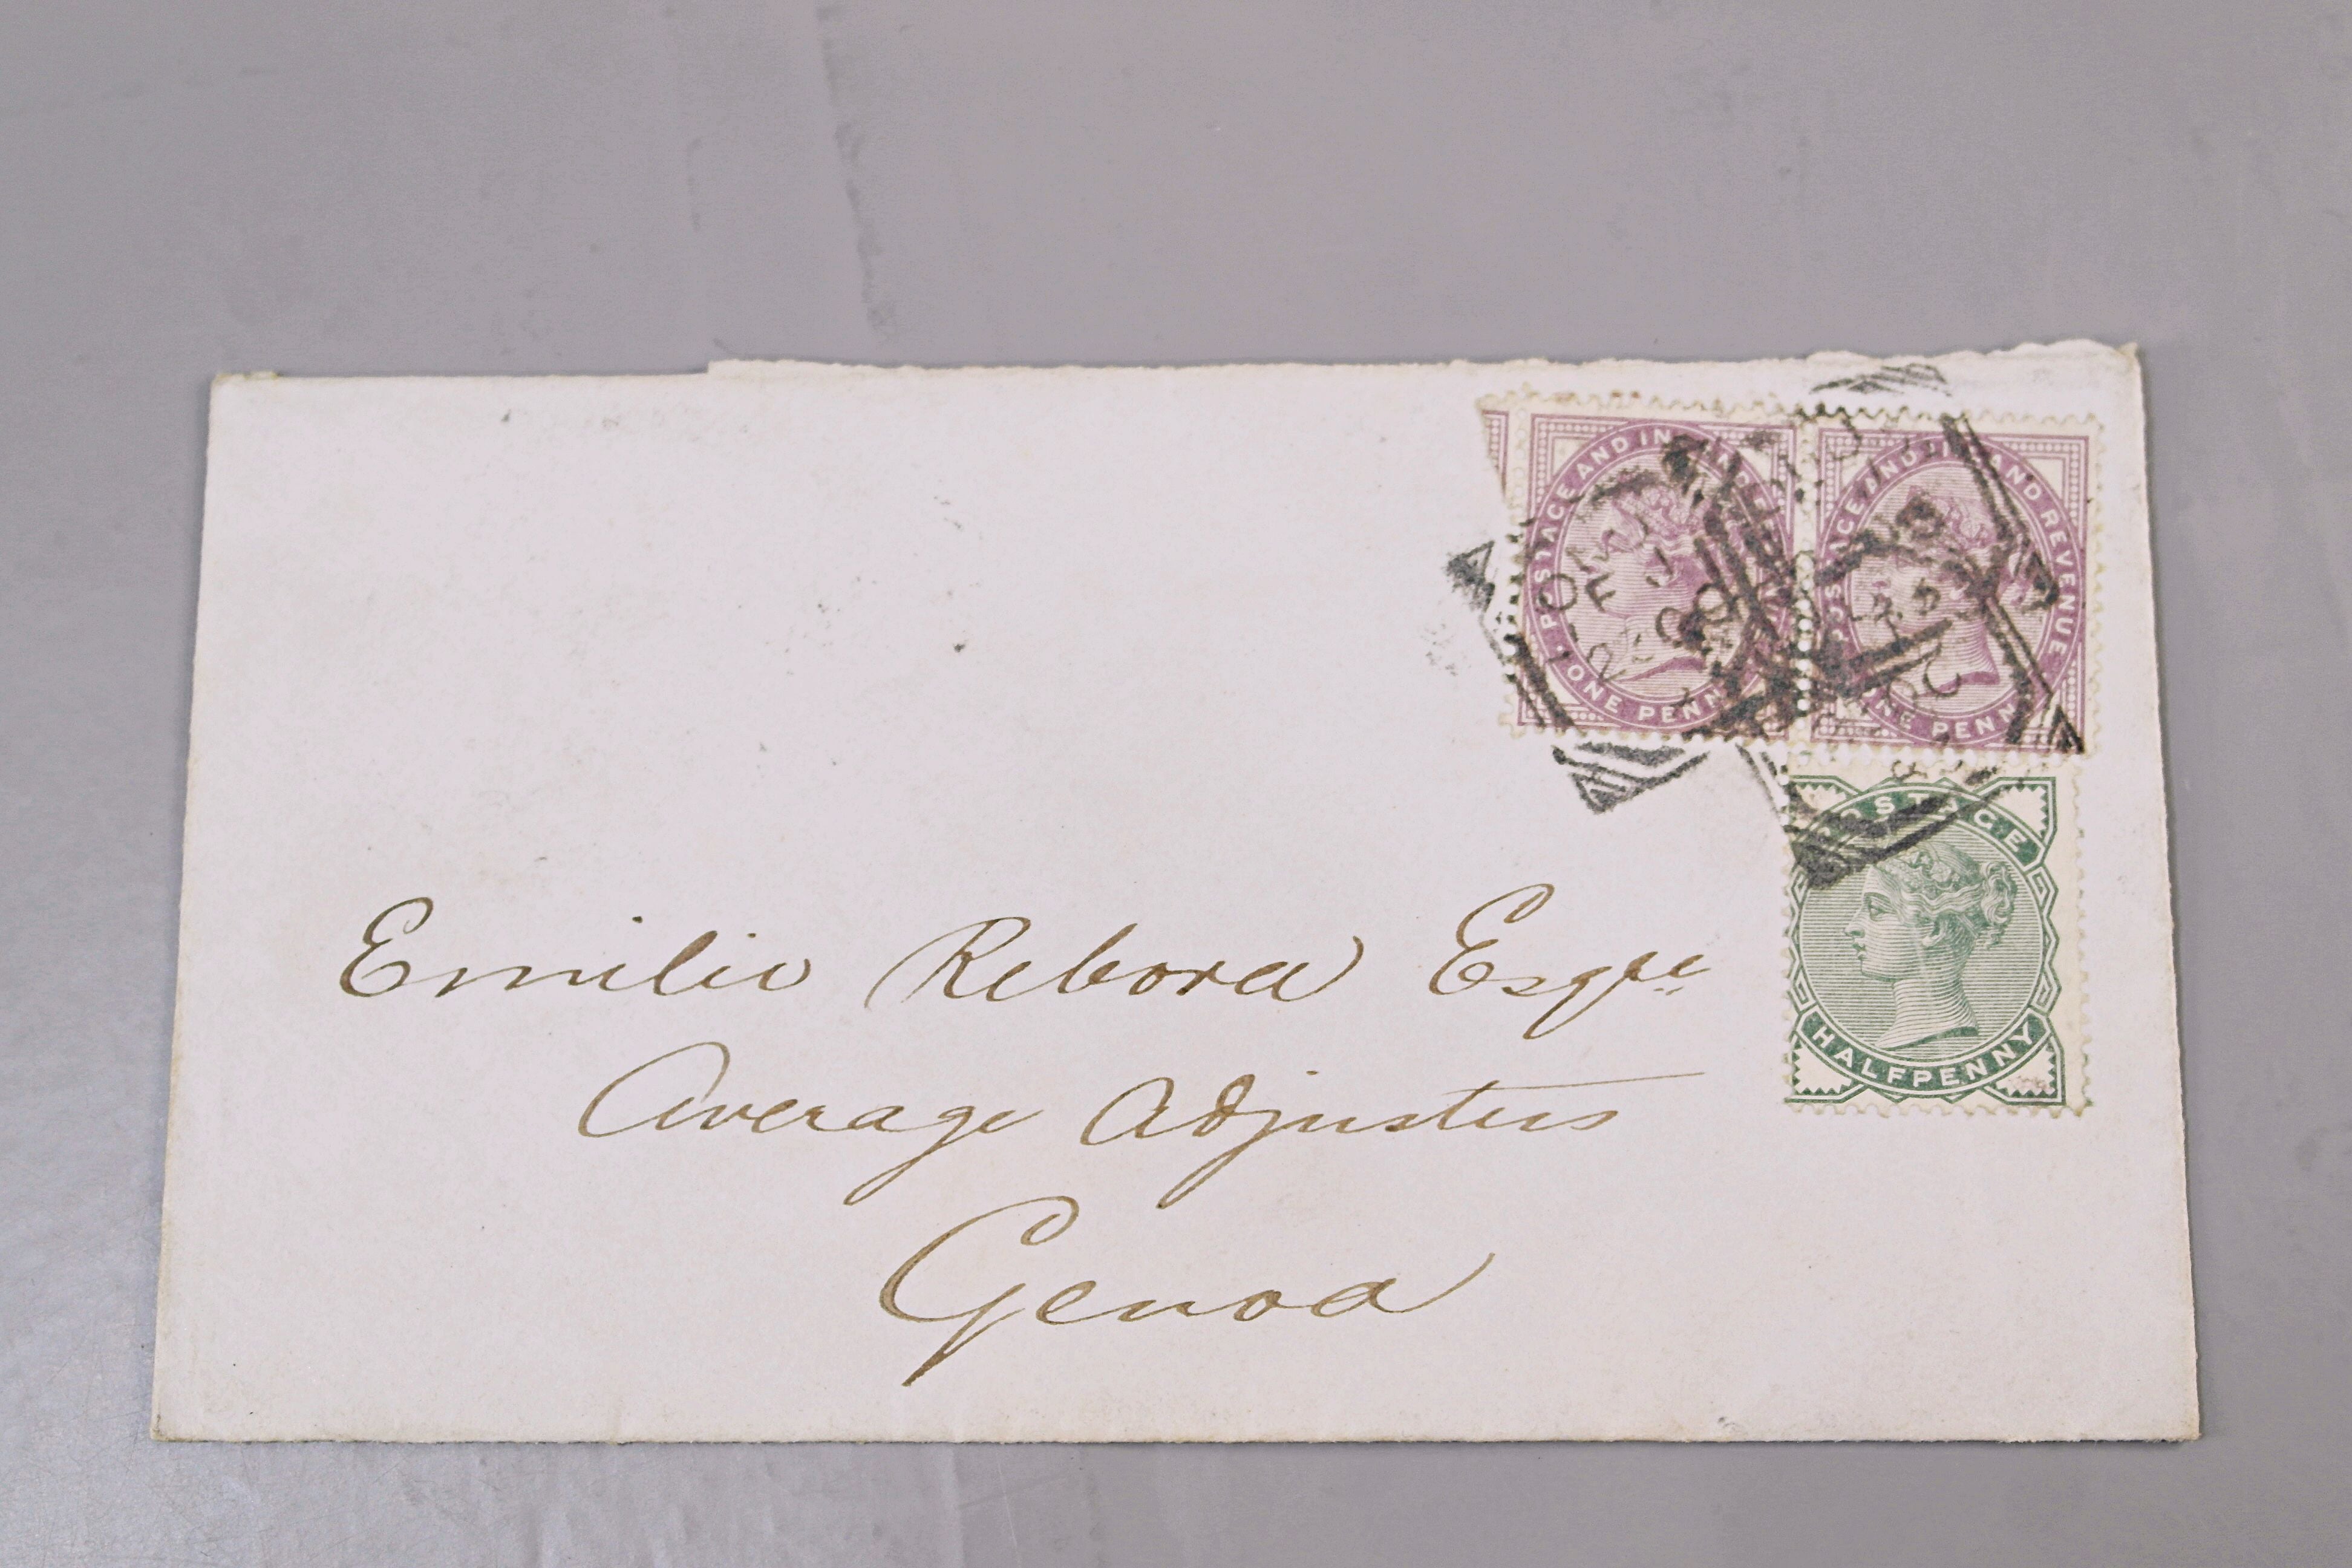 POSTAGE AND INLAND REVENUE
ONE PENNY
POSTAGE AND INLAND REVENUE
ONE PENNY
POSTAGE
HALFPENNY
Emilio Rebora Esqre
Average Adjusters
Genoa